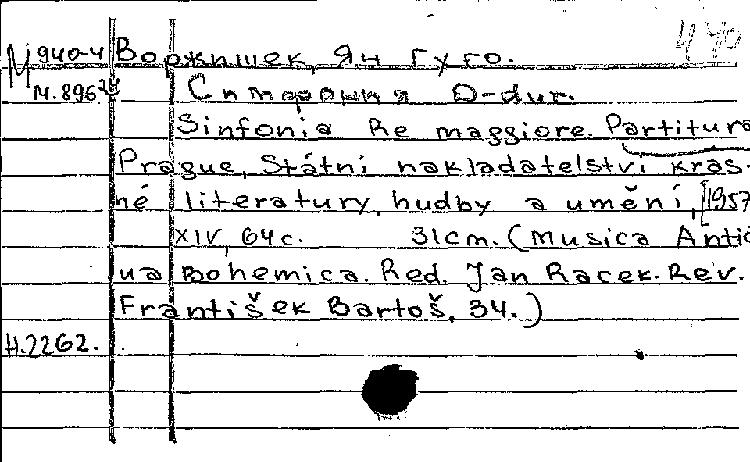 М 940-4 Воржишек, Ян Гуго. 440
М.896
Симфония D-dur.
Sinfonia Re maggiore. Partitura
Prague, Státní nakladatelství krás-
né literatury, hudby a umění, [1957
XIV, 64 с. 31cm. (Musica Antiq
ua Bohemica. Red. Jan Racek. Rev.
František Bartoš, 34.)
Н.2262.